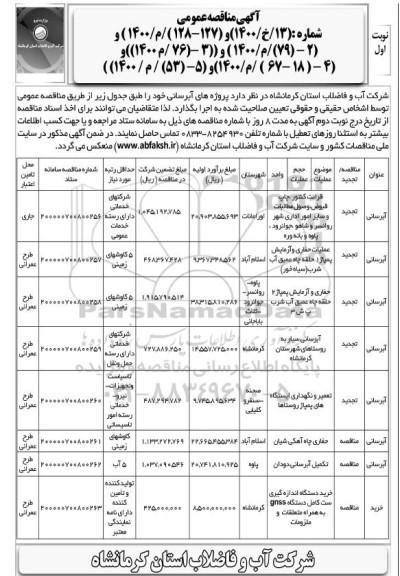 آگهی مناقصه عمومی
نوبت اول
شرکت آب و فاضلاب استان کرمانشاه در نظر دارد پروژه های آبرسانی خود را طبق جدول زیر از طریق مناقصه عمومی
توسط اشخاص حقیقی و حقوقی تعیین صلاحیت شده به اجرا بگذارد. لذا متقاضیان می توانند برای اخذ اسناد مناقصه
از تاریخ درج نوبت دوم آگهی به مدت ۸ روز با شماره مناقصه های ذیل به سامانه ستاد مراجعه و یا جهت کسب اطلاعات
بیشتر به استثنا روزهای تعطیل با شماره تلفن ۰۸۳۳-۸۲۵۴۹۳۰ تماس حاصل نمایند. در ضمن آگهی مذکور در سایت
ملی مناقصات کشور و سایت شرکت آب و فاضلاب استان کرمانشاه (www.abfaksh.ir) منعکس می گردد.
عنوان مناقصه/تجدید موضوع عملیات حجم عملیات واحد شهرستان مبلغ برآورد اولیه (ریال) مبلغ تضمین شرکت در مناقصه (ریال) حداقل رتبه مورد نیاز شماره مناقصه سامانه ستاد محل تامین اعتبار
آبرسانی تجدید قرائت کنتور، چاپ قبوض، وصول مطالبات و سایر امور اداری شهر روانسر و شاهو، جوانرود، پاوه و باینگان اورامانات شرکتهای دارای رسته خدماتی خدمات عمومی ۲۰۰۰۰۰۷۰۰۸۸۰۰۲۵۶ جاری
آبرسانی تجدید عملیات حفاری و آزمایش پمپاژ ۱ حلقه چاه عمیق آب شرب (سیاه خور) اسلام آباد ۹۳۶۷۳۴۸۵۶۲ ۴۶۸۳۶۷۴۲۸ ۵ کاوشهای زمینی ۲۰۰۰۰۰۷۰۰۸۸۰۰۲۵۷ طرح عمرانی
آبرسانی تجدید حفاری و آزمایش پمپاژ ۲ حلقه چاه عمیق آب شرب پاوه-روانسر-جوانرود-ثلاث باباجانی ۳۸۳۱۵۸۱۰۲۸۶ ۱,۹۱۵۷۹۰۵۱۴ ۵ کاوشهای زمینی ۲۰۰۰۰۰۷۰۰۸۸۰۰۲۵۸ طرح عمرانی
آبرسانی تجدید آبرسانی سیار به روستاهای شهرستان کرمانشاه کرمانشاه ۱۴۵۵۷,۷۲۵,۰۰۰ ۷۲۷,۸۸۶,۲۵۰ شرکتهای خدماتی دارای رسته حمل ونقل ۲۰۰۰۰۰۷۰۰۸۸۰۰۲۵۹ طرح عمرانی
آبرسانی تجدید تعمیر و نگهداری ایستگاه های پمپاژ روستاها صحنه-سنقر و کلیایی ۹,۷۴۵,۸۹۵,۶۳۴ ۴۸۷,۲۹۴,۷۸۲ تاسیسات و تجهیزات-نیرو-خدماتی رسته امور تاسیساتی ۲۰۰۰۰۰۷۰۰۸۸۰۰۲۶۰ طرح عمرانی
آبرسانی مناقصه حفاری چاه آهکی شیان اسلام آباد ۲۲,۶۶۵,۴۵۵,۳۸۴ ۱,۱۳۳,۲۷۲,۷۶۹ کاوشهای زمینی ۲۰۰۰۰۰۷۰۰۸۸۰۰۲۶۱ طرح عمرانی
آبرسانی مناقصه تکمیل آبرسانی دودان پاوه ۲۰,۷۴۱,۸۱۰,۹۲۵ ۱,۰۳۷,۰۹۰,۵۴۶ ۵ آب ۲۰۰۰۰۰۷۰۰۸۸۰۰۲۶۲ طرح عمرانی
خرید مناقصه خرید دستگاه اندازه گیری ست کامل دستگاه gnss به همراه متعلقات و ملزومات کرمانشاه ۸,۵۰۰,۰۰۰,۰۰۰ ۴۲۵,۰۰۰,۰۰۰ تولیدکننده و تامین کننده دارای نامه نمایندگی معتبر ۲۰۰۰۰۰۷۰۰۸۸۰۰۲۶۳ طرح عمرانی
شرکت آب و فاضلاب استان کرمانشاه